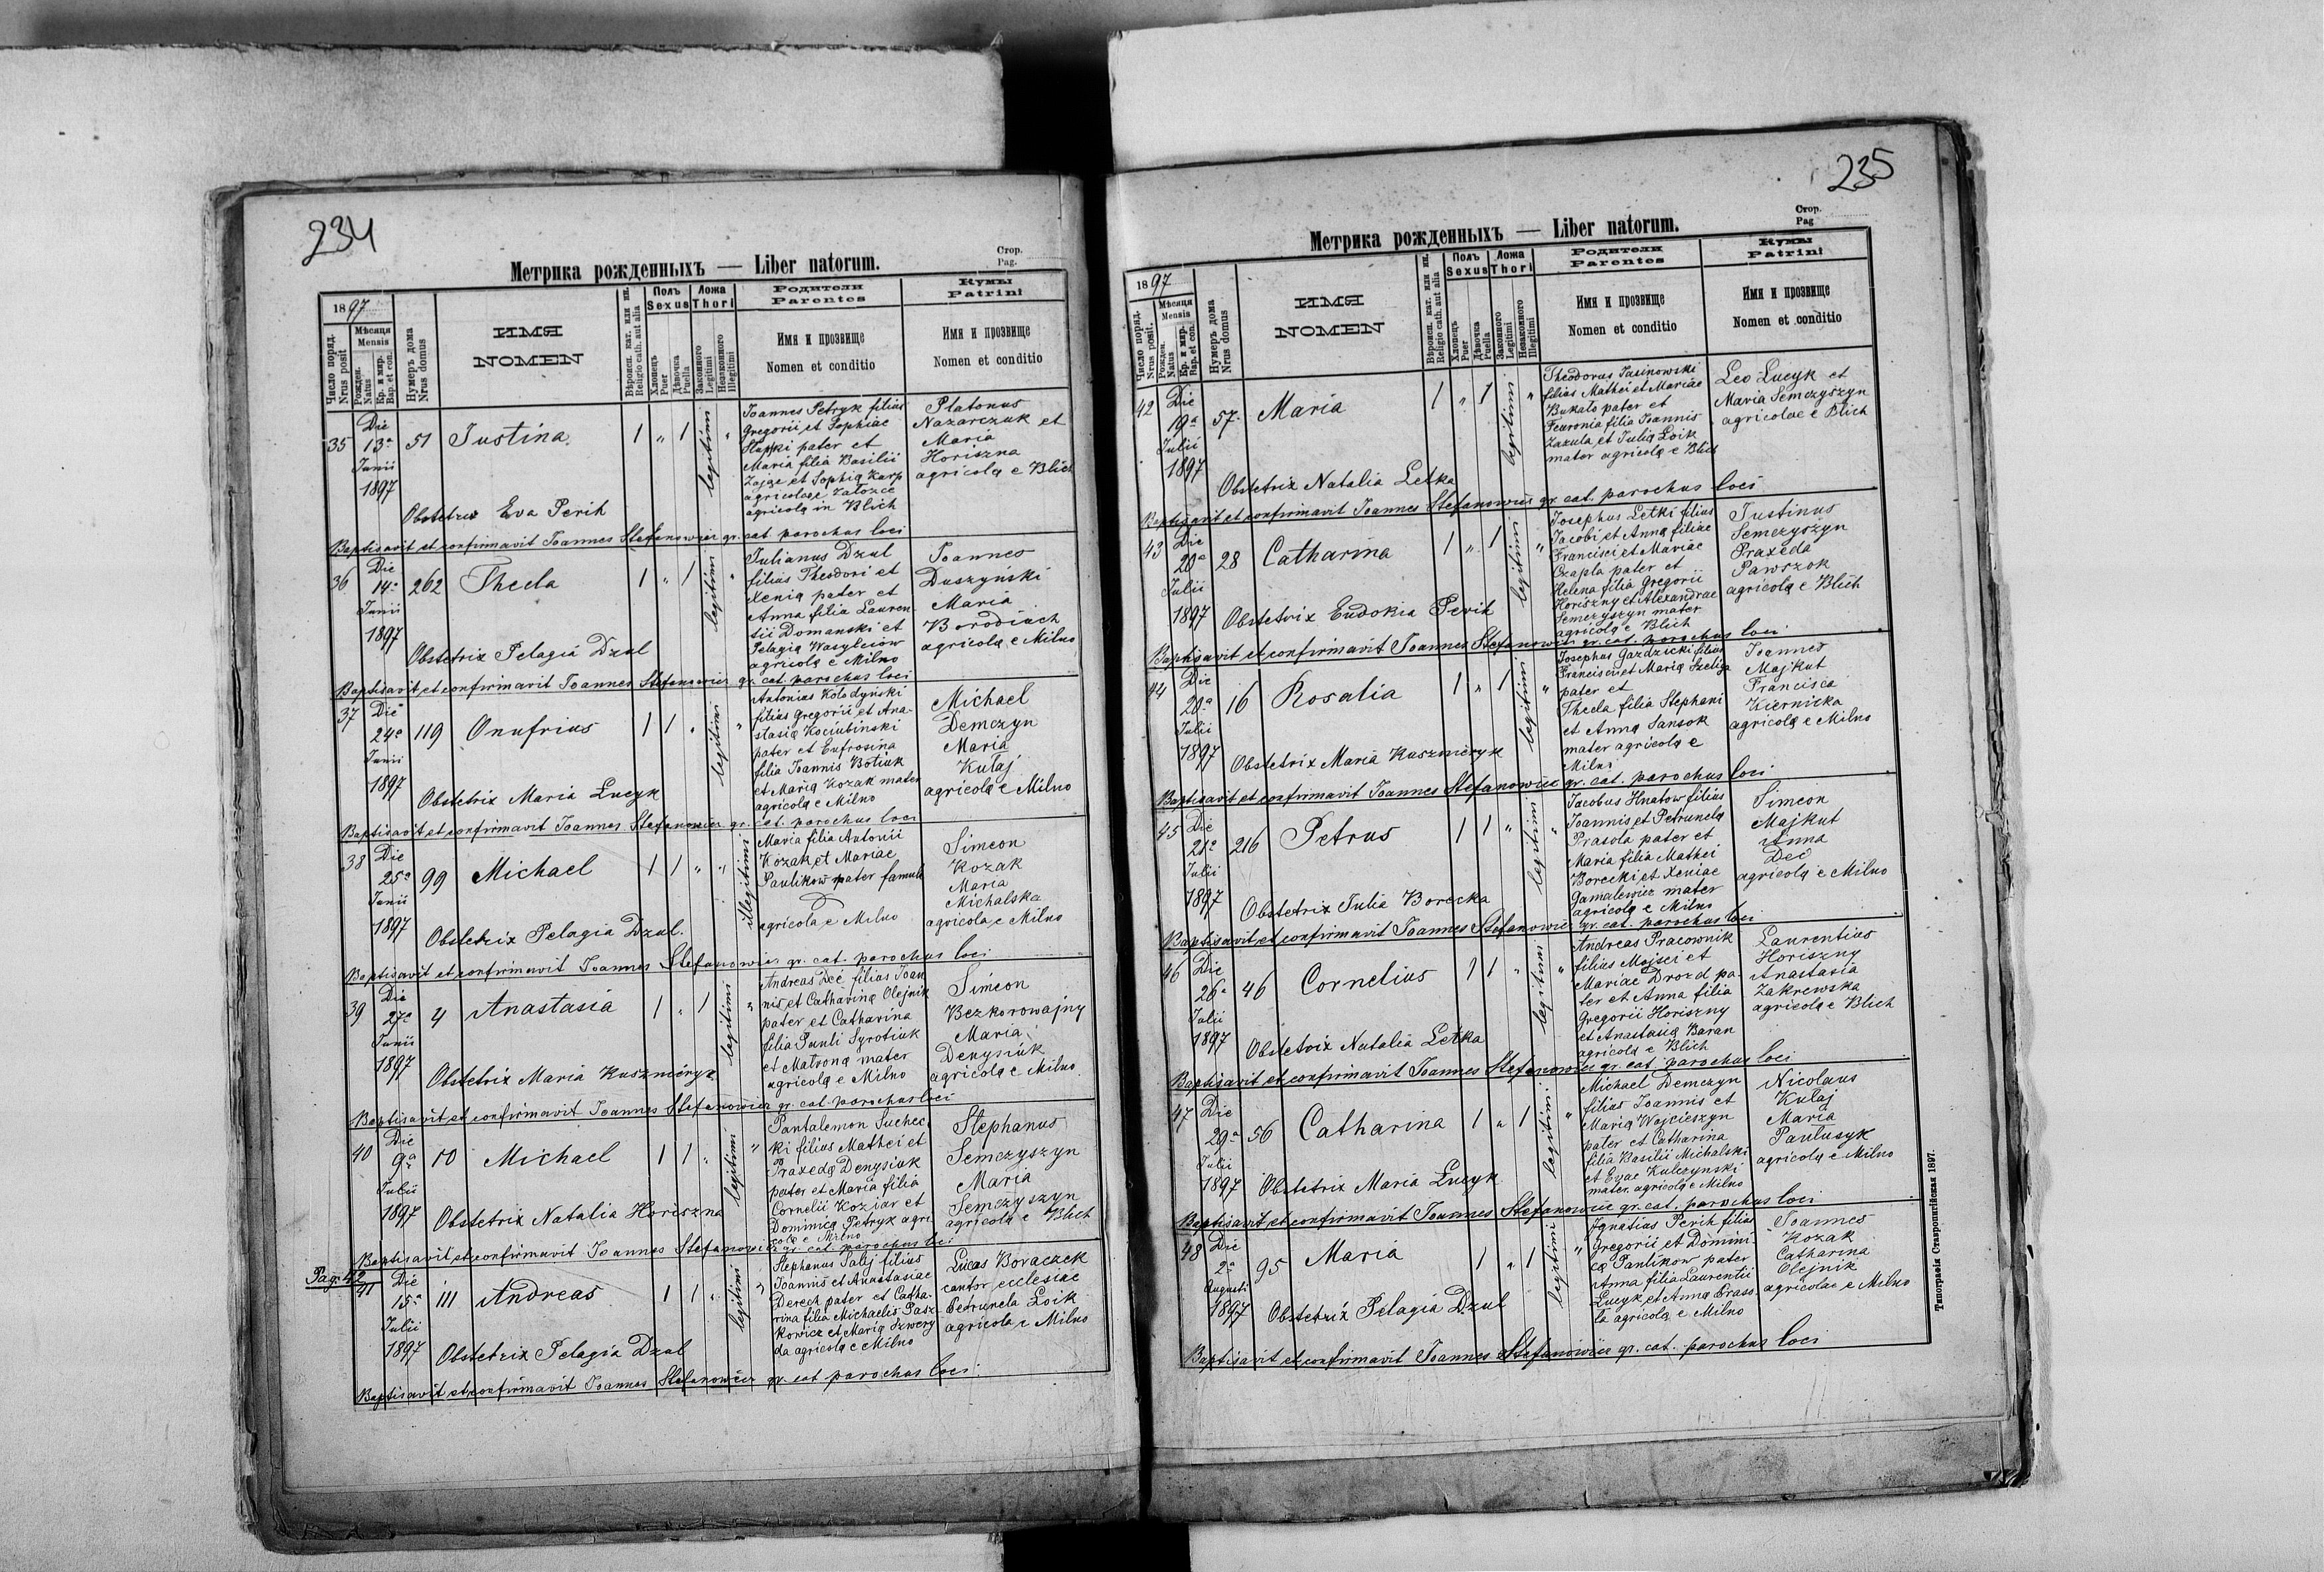 234
Метрика рожденныхъ — Liber natorum.
Стор.
Pag.
1897
Число поряд.
Nrus posit
Мѣсяця
Mensis
Рожден.
Natus
Кр. и мѵр.
Bap. et con.
Нумеръ дома
Nrus domus
ИМЯ
NOMEN
Вѣроисп. кат. или ин.
Religio cath. aut alia
Полъ
Sexus
Хлопецъ
Puer
Дѣвочка
Puella
Ложа
Thori
Законного
Legitimi
Незаконного
Illegitimi
Родители
Parentes
Имя и прозвище
Nomen et conditio
Кумы
Patrini
Имя и прозвище
Nomen et conditio
35
Die
13a
Junii
1897
51
Justina
1 " 1
legitimi
"
Joannes Petryk filius
Gregorii et Sophiae
pater et
Maria filia Basilii
Zając et Sophia Karp
agricolae Załoźce
agricola in Blich
Platonus
Nazarczuk et
Maria
Horiszna
agricola e Blich
Obstetrix Eva Perih
Baptisavit et confirmavit Joannes Stefanowicz gr. cat. parochus loci
36
Die
14a
Junii
1897
262
Thecla
1 " 1
legitimi
"
Julianus Dzul
filius Theodori et
Xenia pater et
Anna filia Lauren
tii Domanski et
Pelagia Wasylciow
agricola e Milno
Joannes
Duszyński
Maria
Borodiuch
agricola e Milno
Obstetrix Pelagia Dzul
Baptisavit et confirmavit Joannes Stefanowicz gr. cat. parochus loci
37
Die
24a
Junii
1897
119
Onufrius
1 1 "
legitimi
"
Antonius Kołodyński
filius Gregorii et Ana-
stasia Kociubinski
pater et Eufrosina
filia Joannis Botiuk
et Maria Kozak mater
agricola e Milno
Michael
Demczyn
Maria
Kułaj
agricola e Milno
Obstetrix Maria Lucyk
Baptisavit et confirmavit Joannes Stefanowicz gr. cat. parochus loci
38
Die
25a
Junii
1897
99
Michael
1 1 " "
illegitimi
Maria filia Antonii
Kozak et Mariae
Paulikow pater famula
agricola e Milno
Simeon
Kozak
Maria
Michalska
agricola e Milno
Obstetrix Pelagia Dzul.
Baptisavit et confirmavit Joannes Stefanowicz gr. cat. parochus loci
39
Die
27a
Junii
1897
4
Anastasia
1 " 1
legitimi
"
Andreas Deć filius Joan
nis et Catharina Olejnik
pater et Catharina
filia Pauli Syrotiuk
et Matrona mater
agricola e Milno
Simeon
Bezkorowajny
Maria
Denysiuk
agricola e Milno
Obstetrix Maria Kuszmeryk
Baptisavit et confirmavit Joannes Stefanowicz gr. cat. parochus loci
40
Die
9a
Julii
1897
10
Michael
1 1 "
legitimi
"
Pantalemon Suchec
ki filius Mathei et
Praxeda Denysiuk
pater et Maria filia
Cornelii Koziar et
Dominica Petryk agri
cola e Milno
Stephanus
Semczyszyn
Maria
Semczyszyn
agricola e Blich
Obstetrix Natalia Horiszna
Baptisavit et confirmavit Joannes Stefanowicz gr. cat. parochus loci
Pag: 42
41
Die
15a
Julii
1897
111
Andreas
1 1 "
legitimi
"
Stephanus Palij filius
Joannis et Anastasiae
Derech pater et Catha-
rina filia Michaelis Pasz
kowicz et Maria Szwery
da agricola e Milno
Lucas Boraczek
cantor ecclesiae
Petrunela Łoik
agricola e Milno
Obstetrix Pelagia Dzul
Baptisavit et confirmavit Joannes Stefanowicz gr. cat parochus loci.
235
Метрика рожденныхъ — Liber natorum.
Стор.
Pag
1897
Число поряд.
Nrus posit.
Мѣсяця
Mensis
Рожден.
Natus
Кр. и мѵр.
Bap. et con.
Нумеръ дома
Nrus domus
ИМЯ
NOMEN
Вѣроисп. кат. или ин.
Religio cath. aut alia
Полъ
Sexus
Хлопецъ
Puer
Дѣвочка
Puella
Ложа
Thori
Законного
Legitimi
Незаконного
Illegitimi
Родители
Parentes
Имя и прозвище
Nomen et conditio
Кумы
Patrini
Имя и прозвище
Nomen et conditio
42
Die
19a
Julii
1897
57
Maria
1 " 1
legitimi
"
Theodorus Jasinowski
filius Mathei et Mariae
Bukało pater et
Feuronia filia Joannis
Zazula et Julia Łoik
mater agricola e Blich
Leo Lucyk et
Maria Semczyszyn
agricolae e Blich
Obstetrix Natalia Letka
Baptisavit et confirmavit Joannes Stefanowicz gr. cat. parochus loci
43
Die
20a
Julii
1897
28
Catharina
1 " 1
legitimi
"
Josephus Letki filius
Jacobi et Anna filiae
Francisci et Mariae
Czapla pater et
Helena filia Gregorii
Horiszny et Alexandrae
Semczyszyn mater
agricola e Blich
Justinus
Semczyszyn
Praxeda
Pawszok
agricola e Blich
Obstetrix Eudokia Perih
Baptisavit et confirmavit Joannes Stefanowicz gr. cat. parochus loci
44
Die
20a
Julii
1897
16
Rosalia
1 " 1
legitimi
"
Josephus Gazdzicki filius
Francisci et Maria Szeliga
pater et
Thecla filia Stephani
et Anna Sansok
mater agricola e
Milno
Joannes
Majkut
Francisca
Kiernicka
agricola e Milno
Obstetrix Maria Kuszmeryk
Baptisavit et confirmavit Joannes Stefanowicz gr. cat. parochus loci
45
Die
21a
Julii
1897
216
Petrus
1 1 "
legitimi
"
Jacobus Hnatow filius
Joannis et Petrunela
Prasoła pater et
Maria filia Mathei
Borecki et Xeniae
Gamalewicz mater
agricola e Milno
Simeon
Majkut
Anna
Deć
agricola e Milno
Obstetrix Julia Borecka
Baptisavit et confirmavit Joannes Stefanowicz gr. cat. parochus loci
46
Die
26a
Julii
1897
46
Cornelius
1 1 "
legitimi
"
Andreas Pracownik
filius Mojsei et
Mariae Drozd pa-
ter et Anna filia
Gregorii Horiszny
et Anastasia Baran
agricola e Blich
Laurentius
Horiszny
Anastasia
Zakrewska
agricola e Blich
Obstetrix Natalia Letka
Baptisavit et confirmavit Joannes Stefanowicz gr. cat. parochus loci
47
Die
29a
Julii
1897
56
Catharina
1 " 1
legitimi
"
Michael Demczyn
filius Joannis et
Maria Wojcieszyn
pater et Catharina
filia Basilii Michalski
et Evae Kulczynski
mater agricola e Milno
Nicolaus
Kułaj
Maria
Pawłusyk
agricola e Milno
Obstetrix Maria Lucyk
Baptisavit et confirmavit Joannes Stefanowicz gr. cat. parochus loci
48
Die
2a
Augusti
1897
95
Maria
1 " 1
legitimi
"
Ignatius Perih filius
Gregorii et Domini
ca Pantikow pater
Anna filia Laurentii
Lucyk et Anna Prass
la agricola e Milno
Joannes
Kozak
Catharina
Olejnik
agricolae e Milno
Obstetrix Pelagia Dzul
Baptisavit et confirmavit Joannes Stefanowicz gr. cat. parochus loci
Типографія Ставропигійская 1897.